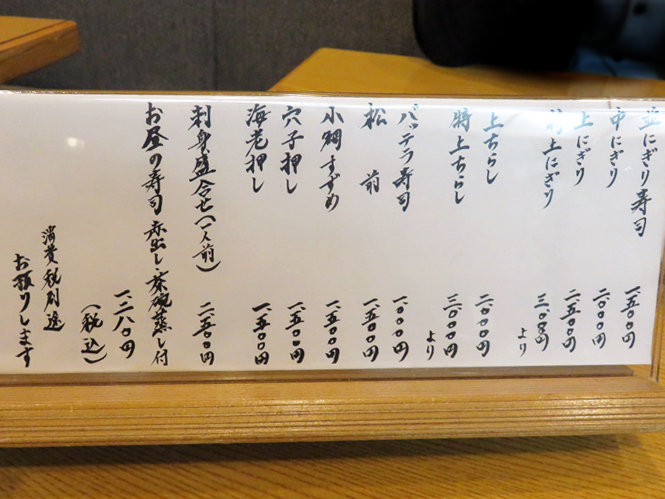 並にぎり寿司 一、五〇〇円
中にぎり 二、〇〇〇円
上にぎり 二、五〇〇円
特上にぎり 三、〇〇〇円より
上ちらし 二、〇〇〇円
特上ちらし 三、〇〇〇円より
バッテラ寿司 一、〇〇〇円
松前 一、五〇〇円
小鯛すずめ 一、五〇〇円
穴子押し 一、五〇〇円
海老押し 一、五〇〇円
刺身盛合せ(一人前) 二、五〇〇円
お昼の寿司 赤出し・茶碗蒸し付
一、二八〇円
(税込)
消費税別途
お預りします